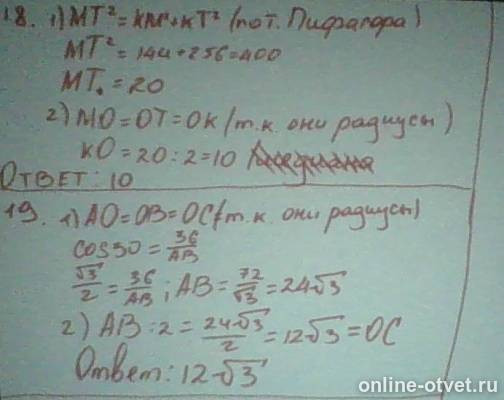 18. 1) MT² = KM² + KT² (по т. Пифагора)
MT² = 144 + 256 = 400
MT = 20
2) MO = OT = OK (т.к. они радиусы)
KO = 20 : 2 = 10
Ответ: 10
19. 1) AO = OB = OC (т.к. они радиусы)
cos30 = 36/AB
√3/2 = 36/AB ; AB = 72/√3 = 24√3
2) AB : 2 = 24√3/2 = 12√3 = OC
Ответ: 12√3
online-otvet.ru